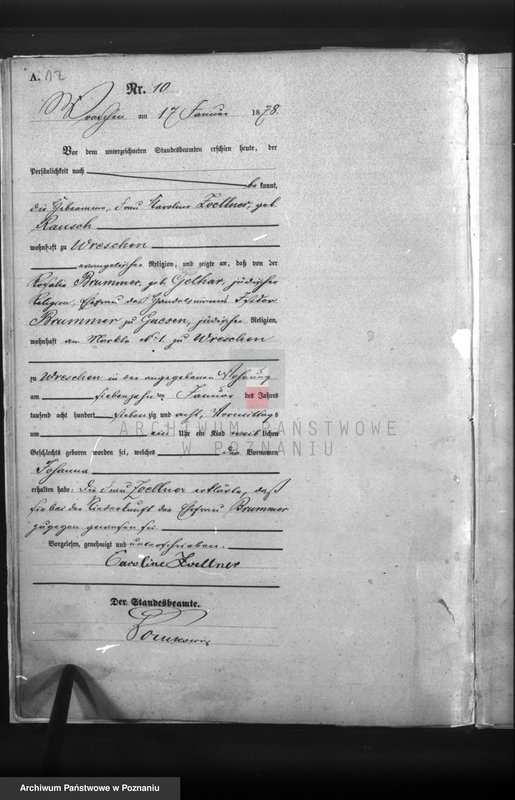 A. 12
Nr. 10
Wreschen am 17 Januar 1878.
Vor dem unterzeichneten Standesbeamten erschien heute, der
Persönlichkeit nach
be kannt,
die Hebeamme, Frau Caroline Zoellner, geb.
Rausch
wohnhaft zu Wreschen
evangelischer Religion, und zeigte an, daß von der
Rosalie Brummer, geb. Gelhar, jüdischer
Religion, Ehefrau des Handelsmanns Isidor
Brummer zu Gnesen, jüdischer Religion,
wohnhaft am Markte No 1. zu Wreschen
zu Wreschen in der angegebenen Wohnung
am siebenzehn ten Januar des Jahres
tausend acht hundert sieben zig und acht, Vormittags
um ein Uhr ein Kind weib lichen
Geschlechts geboren worden sei, welches den Vornamen
Johanna
erhalten habe. Die Frau Zoellner erklärte, daß
sie bei der Niederkunft der Ehefrau Brummer
zugegen gewesen sei.
Vorgelesen, genehmigt und unterschrieben.
Caroline Zoellner
Der Standesbeamte.
ARCHIWUM PAŃSTWOWE
W POZNANIU
Archiwum Państwowe w Poznaniu